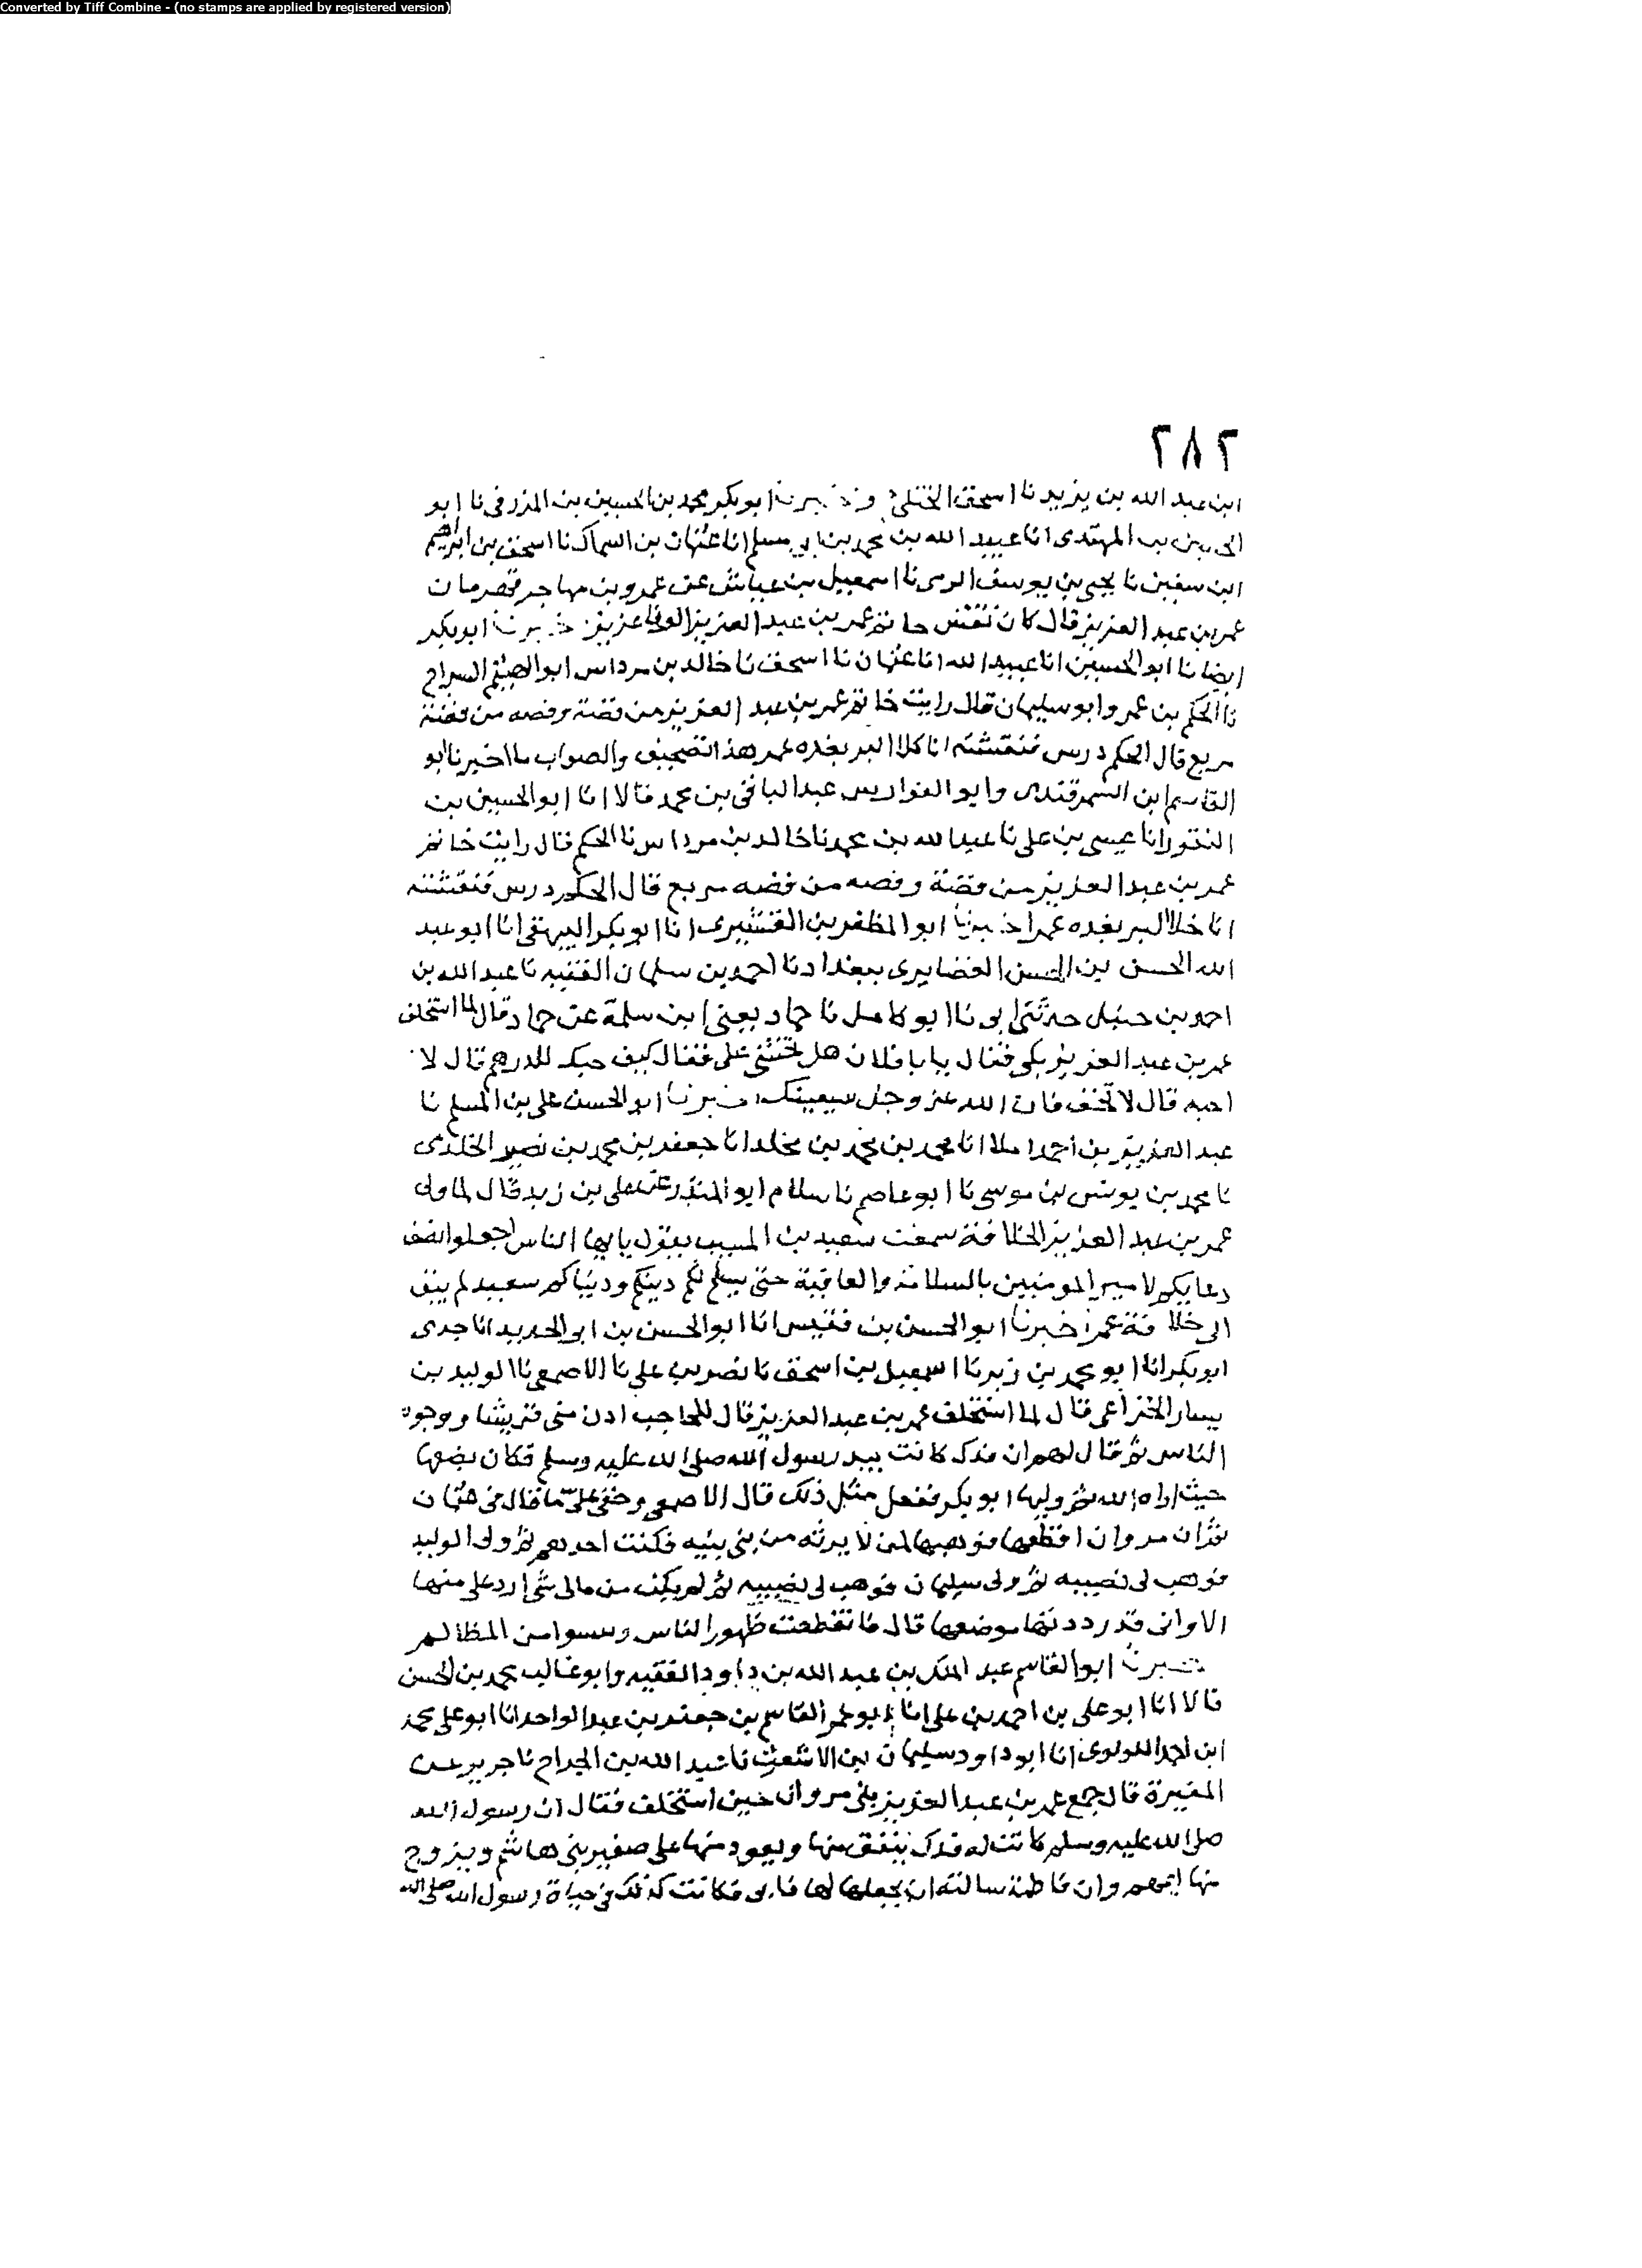 Converted by Tiff Combine - (no stamps are applied by registered version)
٢٨٢
ابن عبد الله بن يزيد نا اسحق الختلى ابو بكر محمد بن الحسين بن المزرفى نا ابو
الحسين بن المهتدى انا عبيد الله بن محمد بن ابى مسلم انا عثمان بن السماك نا اسحق بن ابراهيم
ابن سفين نا يحيى بن يوسف الزمى نا اسمعيل بن عياش عن عمرو بن مهاجر قهرمان
عمر بن عبد العزيز قال كان نقش خاتم عمر بن عبد العزيز الوفا عزيز ابو بكر
ايضا نا ابو الحسين انا عبيد الله انا عثمان نا اسحق نا خالد بن مرداس ابو الهيثم السراج
نا الحكم بن عمر وابو سليمان قال رايت خاتم عمر بن عبد العزيز من فضة وفصه من فضة
مربع قال الحكم درس فنقشته انا كلا البر بغده عمر هذا تصحيف والصواب ما اخبرنا ابو
القاسم ابن السمرقندى وابو الفوارس عبد الباقى بن محمد قالا انا ابو الحسين بن
النقور انا عيسى بن على نا عبد الله بن محمد نا خالد بن مرداس نا الحكم قال رايت خاتم
عمر بن عبد العزيز من فضة وفصه من فضه مربع قال الحكم درس فنقشته
انا خلا البر بغده عمر اخبرنا ابو المظفر بن القشيرى انا ابو بكر البيهقى انا ابو عبد
الله الحسن بن الحسن الغضايرى ببغداد نا احمد بن سلمان الفقيه نا عبد الله بن
احمد بن حنبل حدثنى ابى نا ابو كامل نا حماد يعنى ابن سلمة عن حماد قال لما استخلف
عمر بن عبد العزيز بكى فقال يا با فلان هل تخشى على فقال كيف حبك للدرهم قال لا
احبه قال لا تخف فان الله عز وجل سيعينك اخبرنا ابو الحسن على بن المسلم نا
عبد العزيز بن احمد املا انا محمد بن محمد بن مخلد انا جعفر بن محمد بن نصير الخلدى
نا محمد بن يونس بن موسى نا ابو عاصم نا سلام ابو المنذر عن على بن زيد قال لما ولى
عمر بن عبد العزيز الخلافة سمعت سعيد بن المسيب يقول يا ايها الناس اجعلوا نصف
دعايكم لامير المومنين بالسلامة والعافية حتى يسلم لكم دينكم ودنياكم سعيد لم يبق
الى خلافة عمر اخبرنا ابو الحسن بن قبيس انا ابو الحسن بن ابو الحديد انا جدى
ابو بكر انا ابو محمد بن زبر نا اسمعيل بن اسحق نا نصر بن على نا الاصمعى نا الوليد بن
يسار الخزاعى قال لما استخلف عمر بن عبد العزيز قال للحاجب ادن منى قريشا ووجوه
الناس ثم قال لهم ان فدك كانت بيد رسول الله صلى الله عليه وسلم فكان يضعها
حيث اراه الله ثم وليها ابو بكر ففعل مثل ذلك قال الاصمعى وخفى على ما قال فى عثمان
ثم ان مروان اقطعها فوهبها لمن لا يرثه من بنى بنيه فكنت احدهم ثم ولى الوليد
فوهب لى نصيبه ثم ولى سليمان فوهب لى نصيبه ثم لم يكن من مالى شى ارد على منها
الا وانى قد رددتها موضعها قال فانقطعت ظهور الناس ويسوا من المظالم
اخبرنا ابو القاسم عبد الملك بن عبد الله بن داود الفقيه وابو غالب محمد بن الحسن
قالا انا ابو على بن احمد بن على انا ابو عمر القاسم بن جعفر بن عبد الواحد انا ابو على محمد
ابن احمد اللولوى انا ابو داود سليمان بن الاشعث نا عبد الله بن الجراح نا جرير عن
المغيرة قال جمع عمر بن عبد العزيز بنى مروان حين استخلف فقال ان رسول الله
صلى الله عليه وسلم كانت له فدك ينفق منها ويعود منها على صغير بنى هاشم ويزوج
منها ايمهم وان فاطمة سالته ان يجعلها لها فابى فكانت كذلك فى حياة رسول الله صلى الله